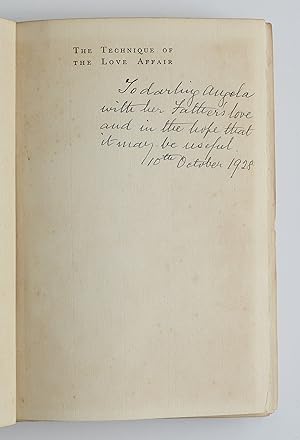 The Technique of
the Love Affair
To darling Angela
with her Fathers love
and in the hope that
it may be useful
10th October 1928